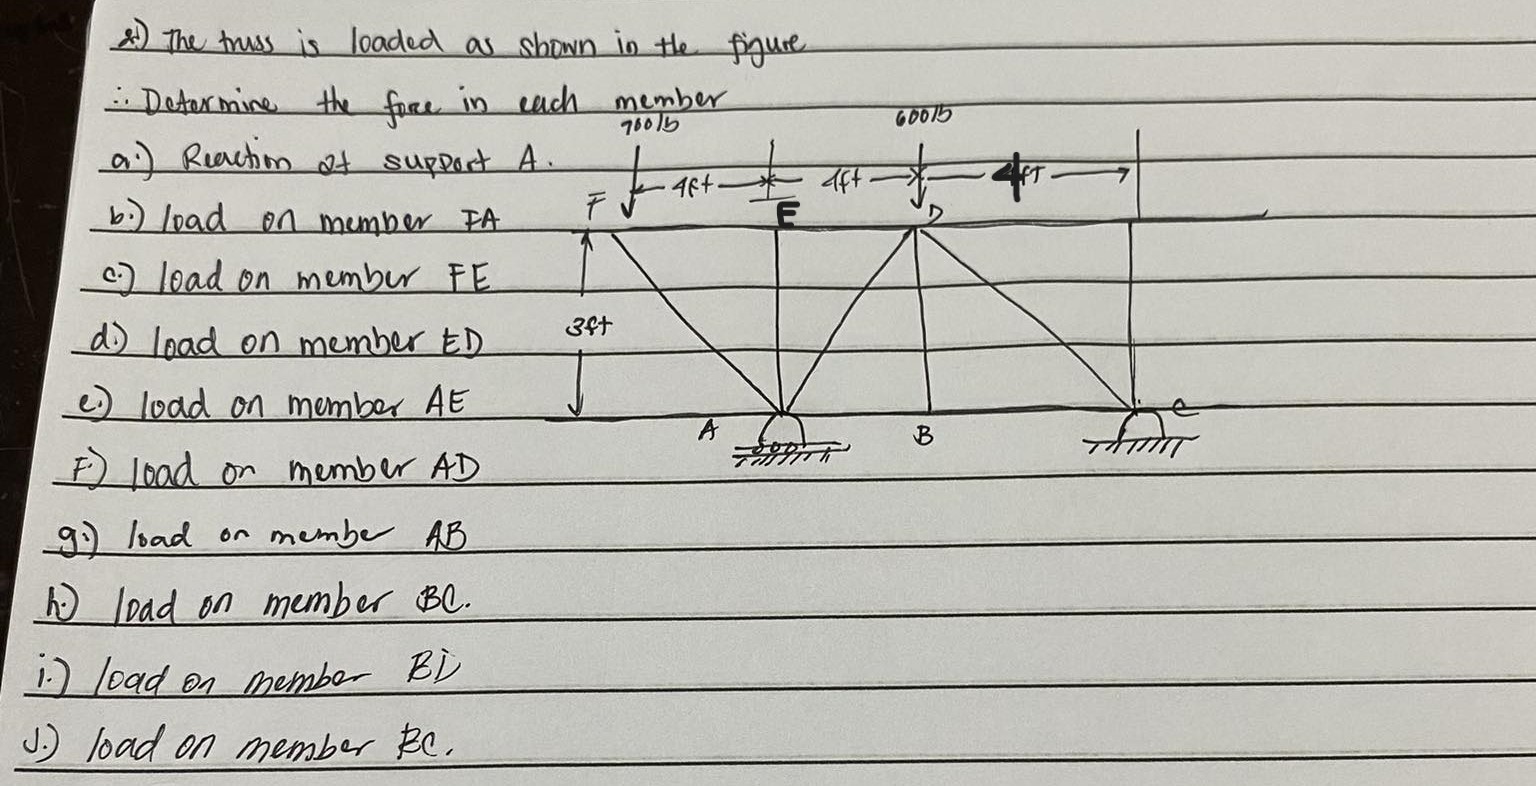 2.) The truss is loaded as shown in the figure
∴ Determine the force in each member
700lb
600lb
a.) Reaction of support A.
4ft
4ft
4ft
F
E
D
b.) load on member FA
c.) load on member FE
3ft
d.) load on member ED
e.) load on member AE
A
B
C
F.) load on member AD
g.) load on member AB
h.) load on member BC.
i.) load on member BD
J.) load on member EC.